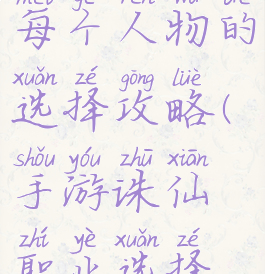 měi gè rén wù de
每个人物的
xuǎn zé gōng lüè
选择攻略(
shǒu yóu zhū xiān
手游诛仙
zhí yè xuǎn zé
职业选择